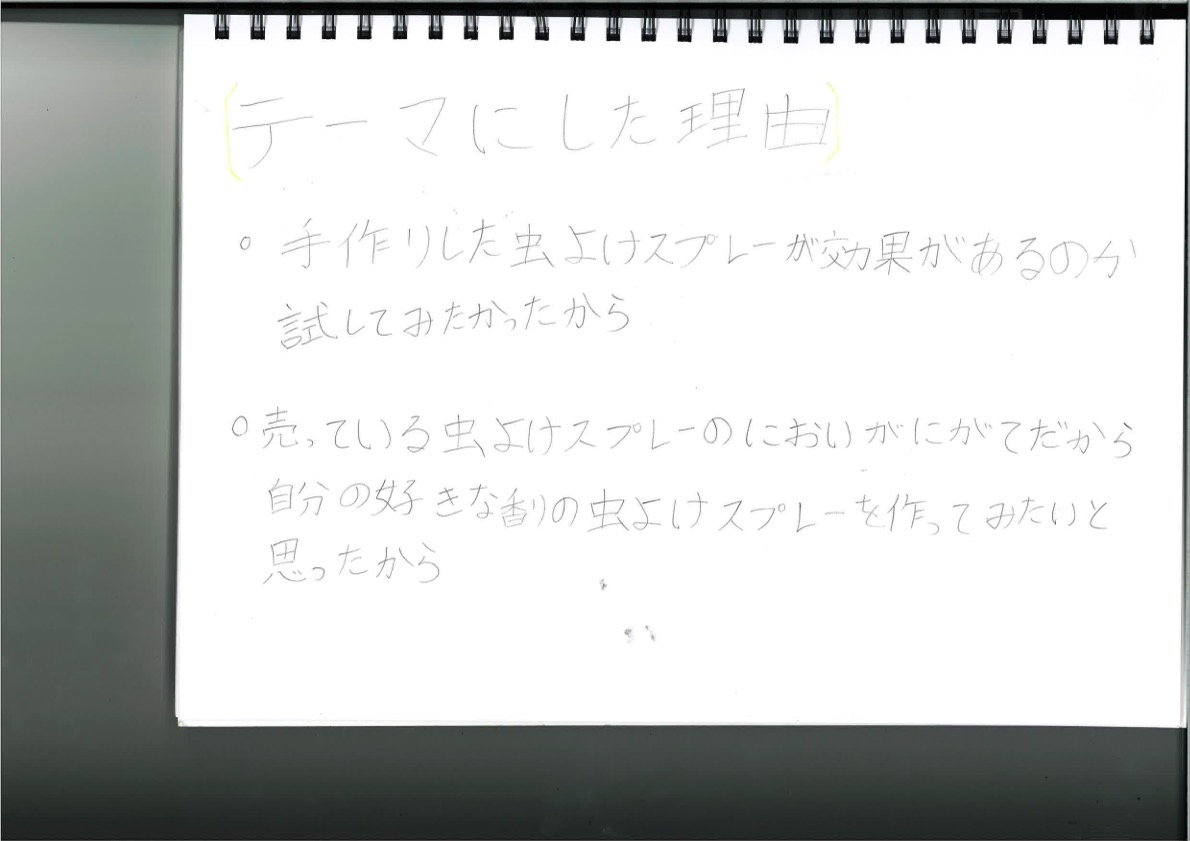 (テーマにした理由)
○ 手作りした虫よけスプレーが効果があるのか
試してみたかったから
○ 売っている虫よけスプレーのにおいがにがてだから
自分の好きな香りの虫よけスプレーを作ってみたいと
思ったから